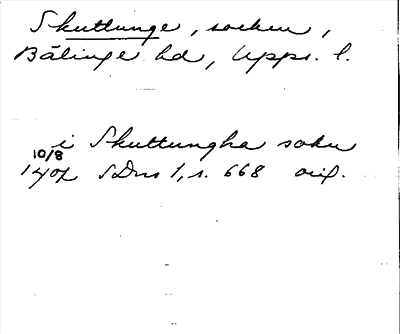 Skuttunge, socken,
Bälinge hd, Upps. l.
i Skuttungha sokn
10/8
1402 SDns 1, s. 668 orig.